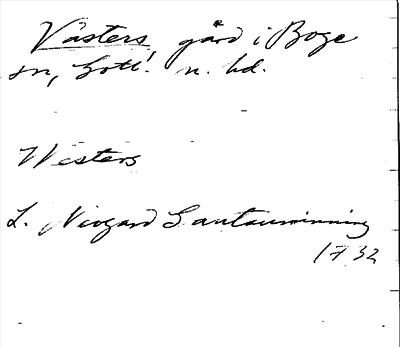 Västers, gård i Boge
sn, Gotl. n. hd.
Westers
L. Niogard Santauinning
1732